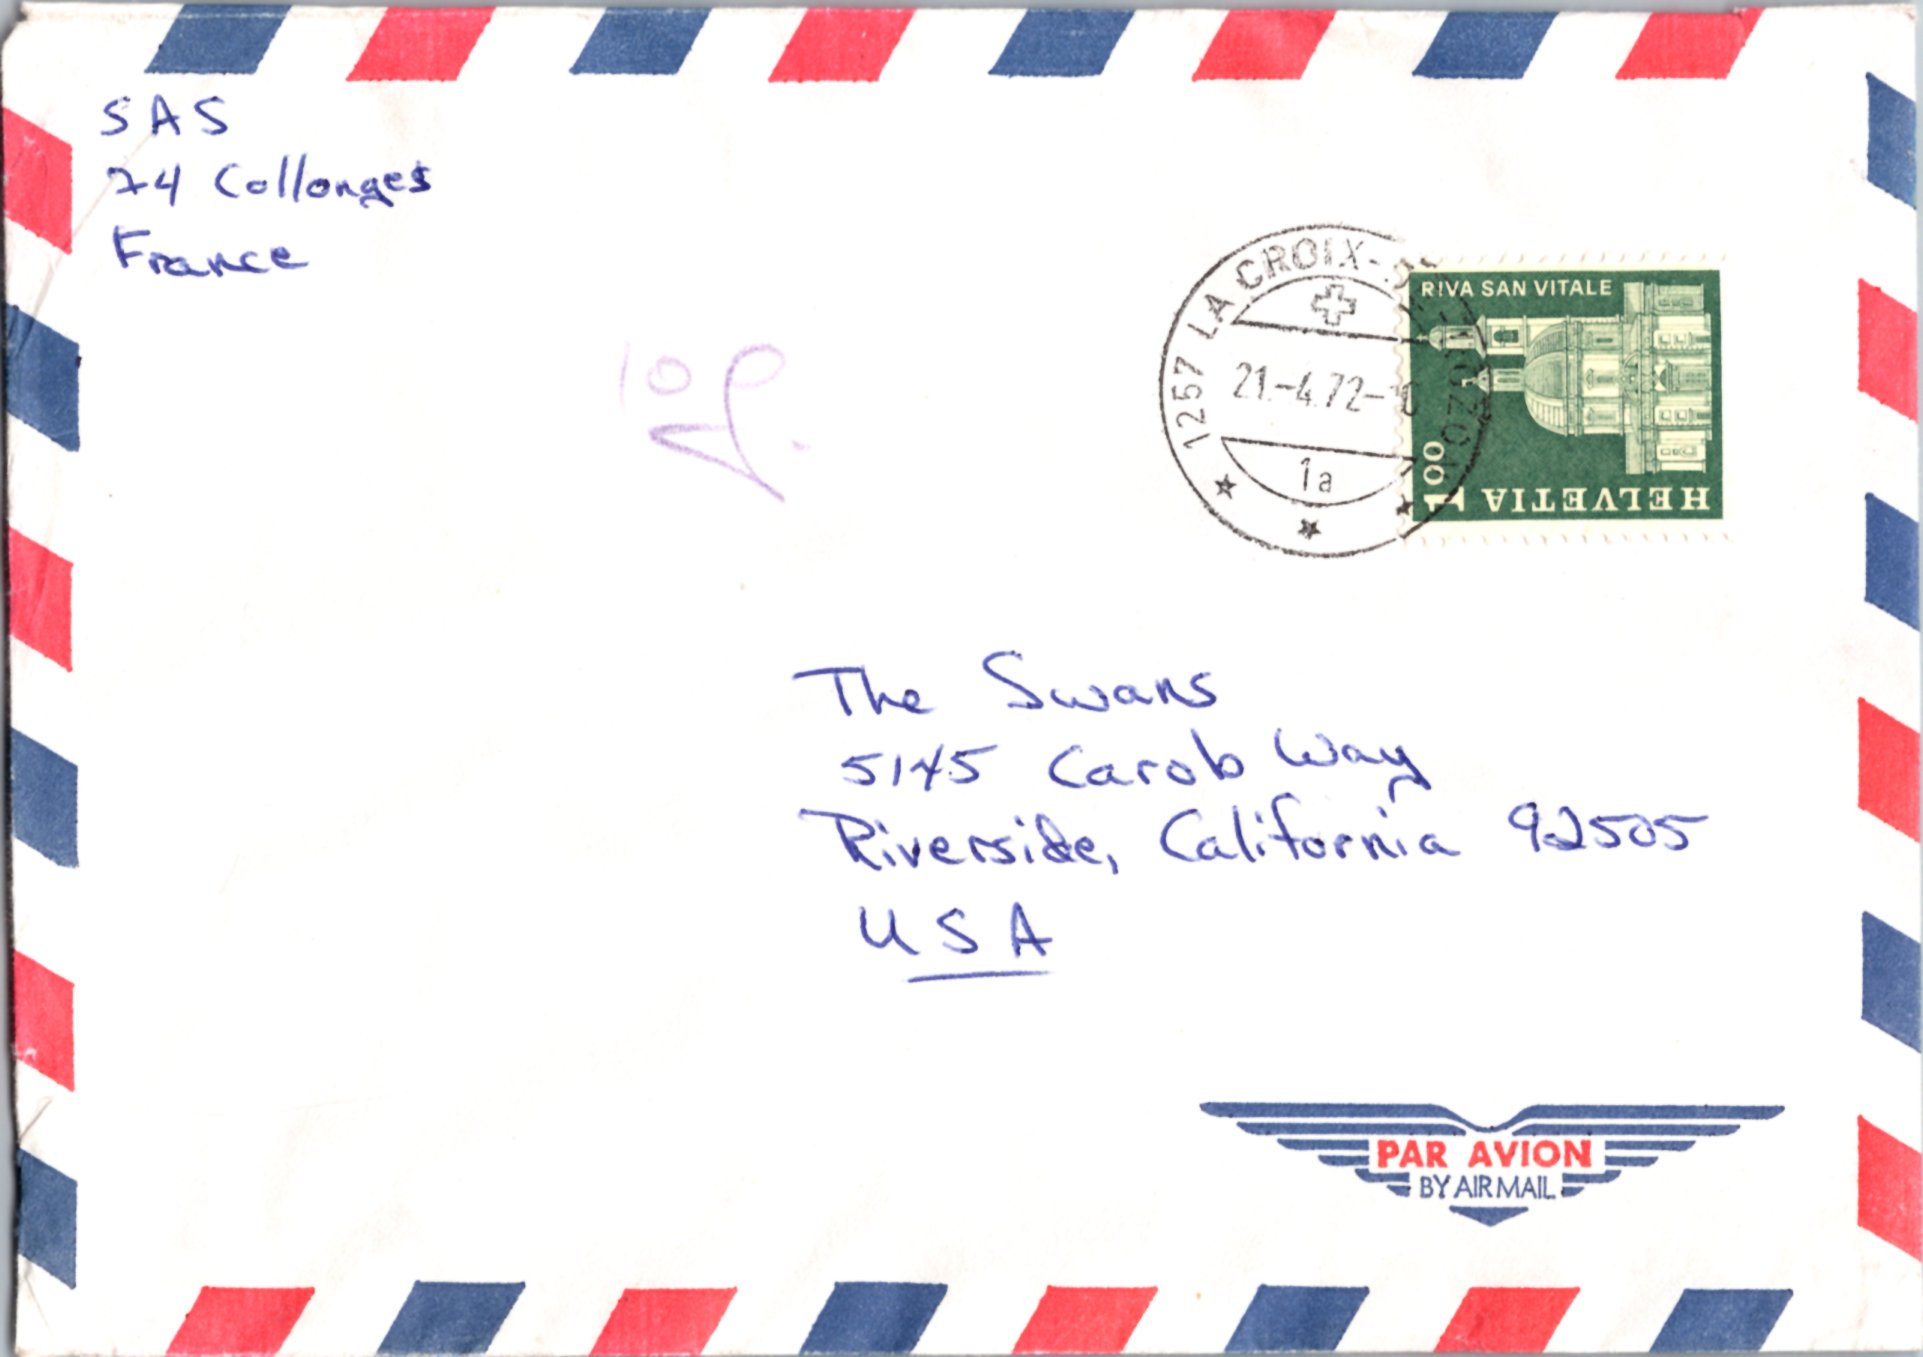 SAS
74 Collonges
France
1257 LA CROIX-DE-ROZON
21.-4.72-
1a
RIVA SAN VITALE
1 00
HELVETIA
10
The Swans
5145 Carob Way
Riverside, California 92505
USA
PAR AVION
BY AIR MAIL